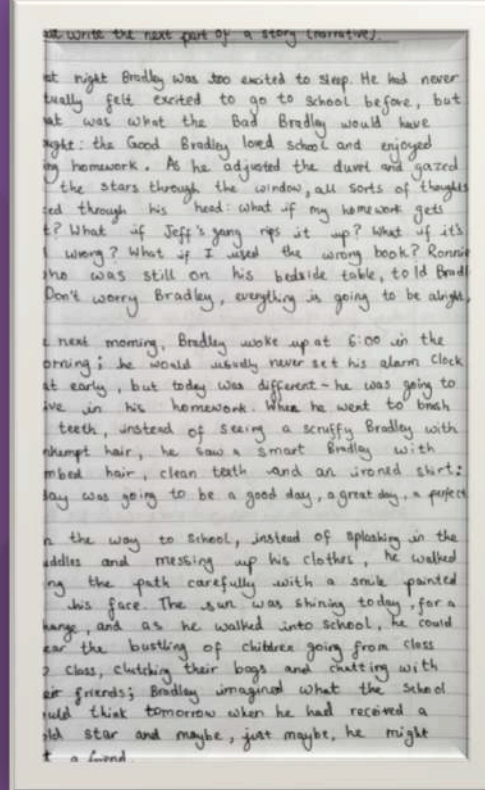 write the next part of a story (narrative).
night Bradley was too excited to sleep. He had never
felt excited to go to school before, but
was what the Bad Bradley would have
: the Good Bradley loved school and enjoyed
homework. As he adjusted the duvet and gazed
the stars through the window, all sorts of thoughts
through his head: what if my homework gets
? What if Jeff's gang rips it up? What if it's
wrong? What if I used the wrong book? Ronnie
who was still on his bedside table, told Bradl
Don't worry Bradley, everything is going to be alright,
next morning, Bradley woke up at 6:00 in the
orning; he would usually never set his alarm clock
at early, but today was different - he was going to
ive in his homework. When he went to brush
teeth, instead of seeing a scruffy Bradley with
nkempt hair, he saw a smart Bradley with
mbed hair, clean teeth and an ironed shirt:
day was going to be a good day, a great day, a perfect
n the way to school, instead of splashing in the
uddles and messing up his clothes, he walked
ng the path carefully with a smile painted
his face. The sun was shining today, for a
hange, and as he walked into school, he could
ear the bustling of children going from class
class, clutching their bags and chatting with
eir friends; Bradley imagined what the school
uld think tomorrow when he had received a
old star and maybe, just maybe, he might
a friend.